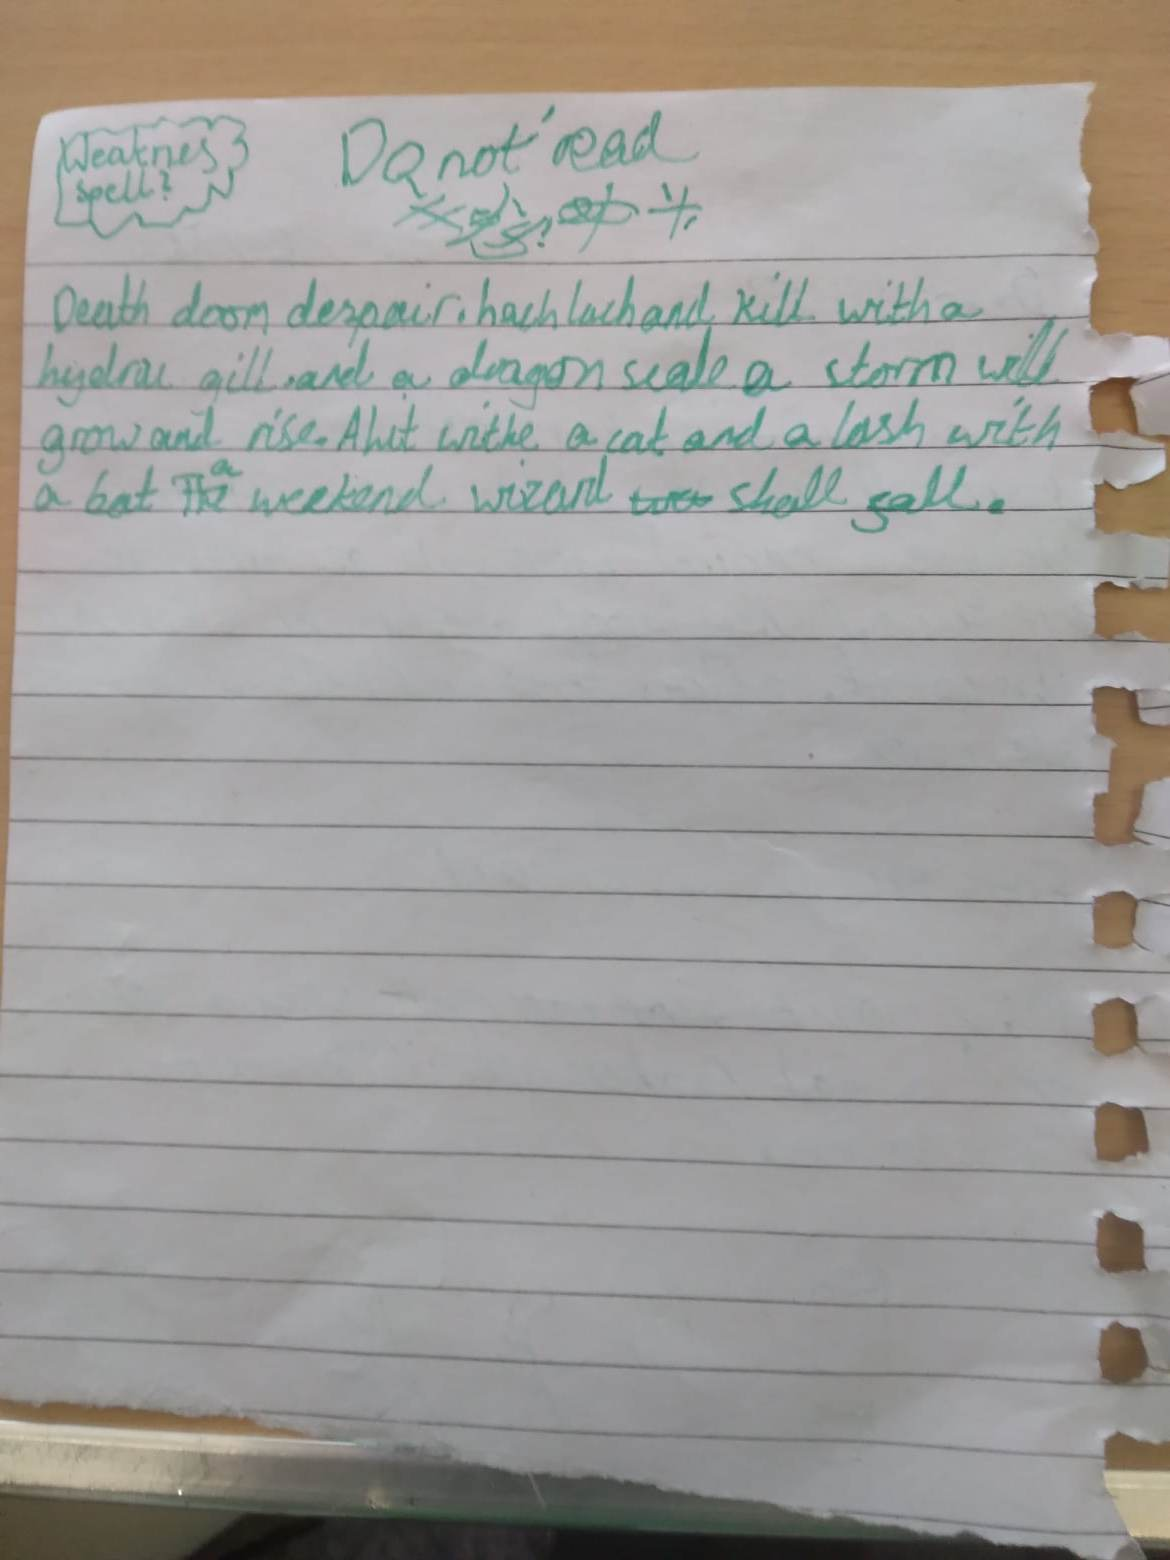 Weaknes
spell?
Do not read
Death doom despair. hach lach and kill with a
hydra gill. and a dragon scale a storm will
grow and rise. A hit withe a cat and a lash with
a bat a weekend wizard shall fall.